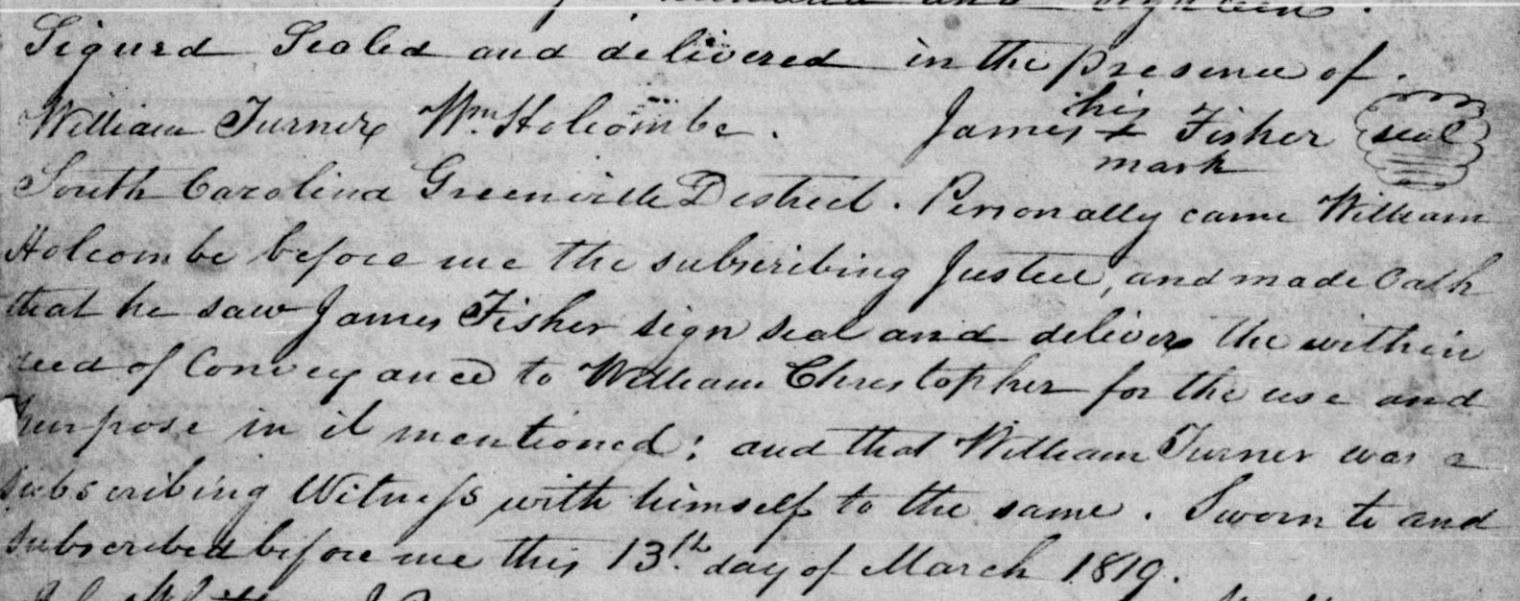 hundred and eighteen.
Signed Sealed and delivered in the presence of.
William Turner Wm. Holcombe. James his + mark Fisher seal
South Carolina Greenville District. Personally came William
Holcombe before me the subscribing Justice, and made Oath
that he saw James Fisher sign seal and deliver the within
deed of Conveyance to William Christopher for the use and
purpose in it mentioned; and that William Turner was a
subscribing Witness with himself to the same. Sworn to and
subscribed before me this 13th. day of March 1819.